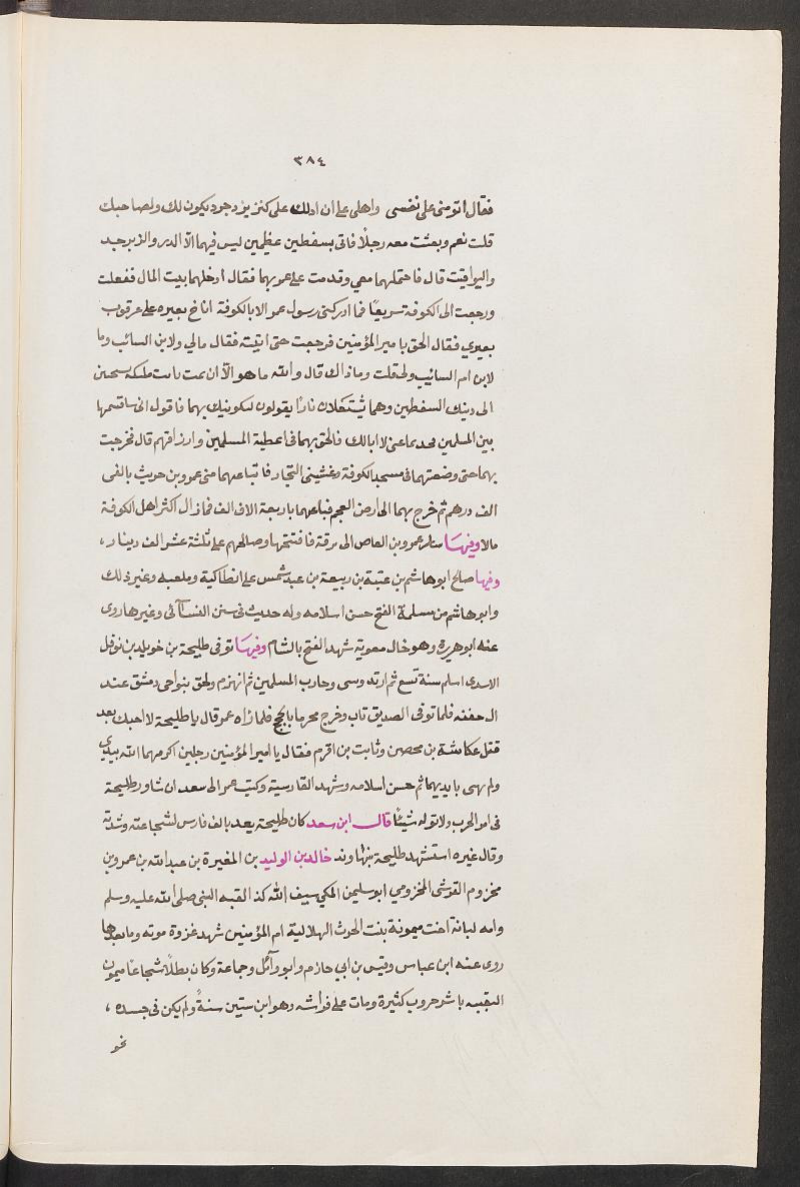 ٣٨٤
فقال اتومنى على نفسى واهلى على ان ادلك على كنز يزدجرد يكون لك ولصاحبك
قلت نعم وبعثت معه رجلًا فاتى بسفطين عظيمين ليس فيهما الّا الدر والزبرجد
واليواقيت قال فاحتملهما معي وقدمت على عمر بهما فقال ادخلهما بيت المال ففعلت
ورجعت الى الكوفة سريعًا فما ادركنى رسول عمر الا بالكوفة اناخ بعيره على عرقوب
بعيري فقال الحق بامير المؤمنين فرجعت حتى اتيته فقال مالي ولابن السائب وما
لابن ام السائب ولى قلت وماذاك قال والله ما هو الّا ان نمت باتت ملئكة تسحبنى
الى ذينك السفطين وهما يشتعلان نارًا يقولون لنكوينك بهما فاقول انى ساقسمهما
بين المسلمين فخذهما عنى لا ابالك فالحق بهما فى اعطية المسلمين وارزاقهم قال فخرجت
بهما حتى وضعتهما فى مسجد الكوفة وغشينى التجار فابتاعهما منى عمرو بن حريث بالفى
الف درهم ثم خرج بهما الى ارض العجم فباعهما باربعة الاف الف فمازال اكثر اهل الكوفة
مالا وفيها سار عمرو بن العاص الى برقة فافتتحها وصالحهم على ثلثة عشر الف دينار،
وفيها صالح ابو هاشم بن عتبة بن ربيعة بن عبد شمس على انطاكية وملعبه وغير ذلك
وابو هاشم من مسلمة الفتح حسن اسلامه وله حديث فى سنن النسآئى وغيرها روى
عنه ابو هريرة وهو خال معوية شهد الفتح بالشام وفيها توفى طليحة بن خويلد بن نوفل
الاسدى اسلم سنة تسع ثم ارتد وسى وحارب المسلمين ثم انهزم ولحق بنواحى دمشق عند
ال حفنه فلما توفى الصديق تاب وخرج محرما بالحج فلما رأه عمر قال يا طليحة لا احبك بعد
قتل عكاشة بن محصن وثابت بن اقرم فقال يا امير المؤمنين رجلين اكرمهما الله بيدي
ولم يهنى بايديهما ثم حسن اسلامه وشهد القادسية وكتب عمر الى سعد ان شاور طليحة
فى امر الحرب ولا توله شيئًا قال ابن سعد كان طليحة يعد بالف فارس لشجاعته وشدته
وقال غيره استشهد طليحة بنهاوند خالد بن الوليد بن المغيرة بن عبد الله بن عمرو بن
مخزوم القرشى المخزومي ابو سليمن المكي سيف الله كذا لقبه النبى صلى الله عليه وسلم
وامه لبابة اخت ميمونة بنت الحرث الهلالية ام المؤمنين شهد غزوة موته وما بعدها
روى عنه ابن عباس وقيس بن ابي حازم وابو وآئل وجماعة وكان بطلًا شجاعًا ميمون
النقيبه باشر حروب كثيرة ومات على فراشه وهو ابن ستين سنةً ولم يكن فى جسده،
نحو